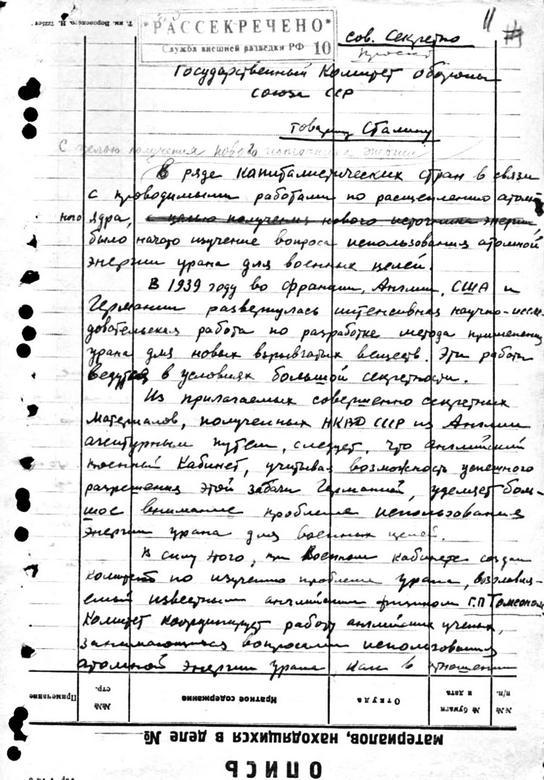 *РАССЕКРЕЧЕНО*
Служба внешней разведки РФ 10
11
Сов. Секретно
Государственный Комитет Обороны
Союза ССР
товарищу Сталину
С целью получения нового источника энергии
В ряде капиталистических стран в связи
с проводимыми работами по расщеплению атом-
ного ядра, с целью получения нового источника энергии,
было начато изучение вопроса использования атомной
энергии урана для военных целей.
В 1939 году во Франции, Англии, США и
Германии развернулась интенсивная научно-иссле-
довательская работа по разработке метода применения
урана для новых взрывчатых веществ. Эти работы
ведутся в условиях большой секретности.
Из прилагаемых совершенно секретных
материалов, полученных НКВД СССР из Англии
агентурным путем, следует, что английский
Военный Кабинет, учитывая возможность успешного
разрешения этой задачи Германией, уделяет боль-
шое внимание проблеме использования
энергии урана для военных целей.
В силу этого, при Военном кабинете создан
комитет по изучению проблемы урана, возглавля-
емый известным английским физиком Г.П Томсоном.
Комитет координирует работу английских ученых,
занимающихся вопросами использования
атомной энергии урана как в отношении
Примечание
№№ стр.
Краткое содержание
Откуда
№ бумаги и дата
№№ п/п.
материалов, находящихся в деле №
ОПИСЬ